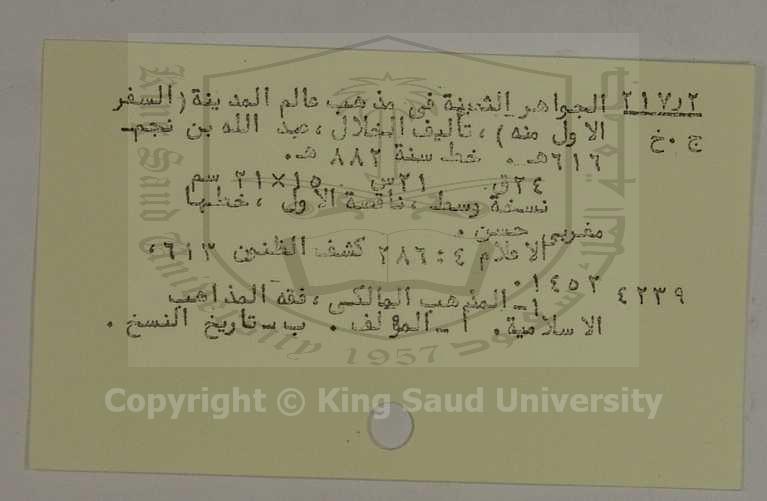 ٢١٧٫٢ الجواهر الثمينة في مذهب عالم المدينة ( السفر
ج . خ الاول منه ) ، تأليف الخلال ، عبد الله بن نجم ـ
٦١٦هـ . خط سنة ٨٨٢ هـ .
٢٤ق ٢١س ١٥×٢١ سم
نسخة وسط ، ناقصة الاول ، خطها
مغربي حسن .
الاعلام ٤ : ٢٨٦ كشف الظنون ٦١٣ ،
١٤٥٢ .
٤٢٣٩ ١ ـ المذهب المالكي ، فقه المذاهب
الاسلامية . أ ـ المؤلف . ب ـ تاريخ النسخ .
King Saud University
1957
Copyright © King Saud University